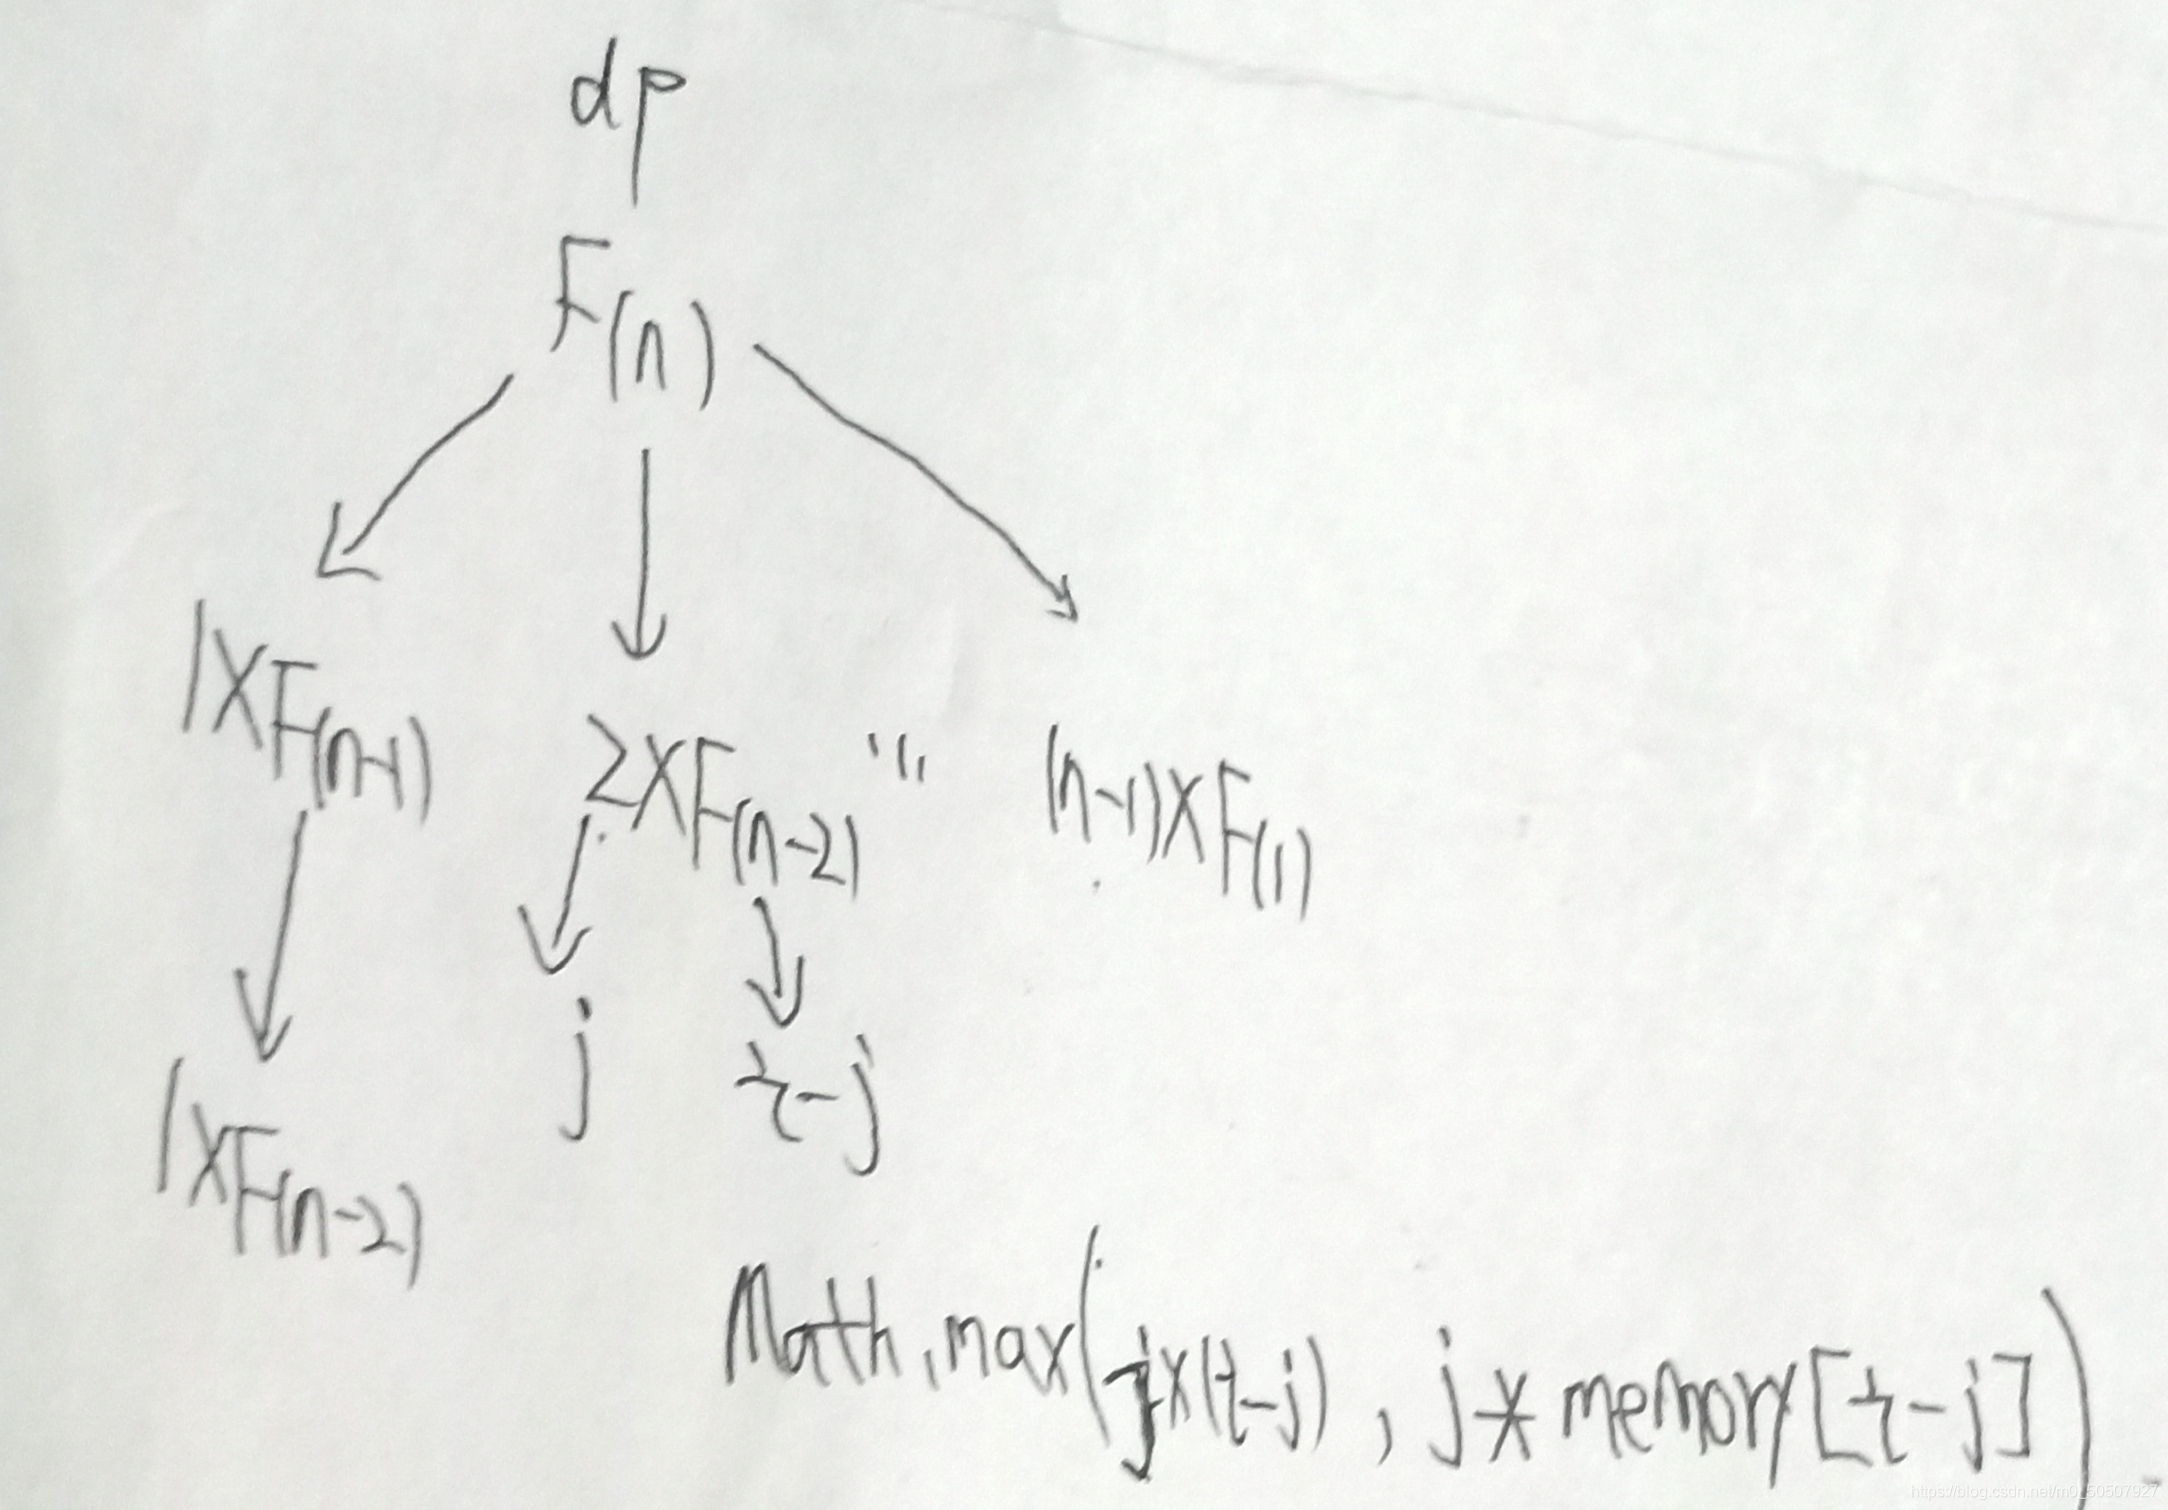 dp
F(n)
1XF(n-1) 2XF(n-2) ... (n-1)XF(1)
j i-j
1XF(n-2)
Math.max(jx(i-j), j*memory[i-j])
https://blog.csdn.net/m0_50507927